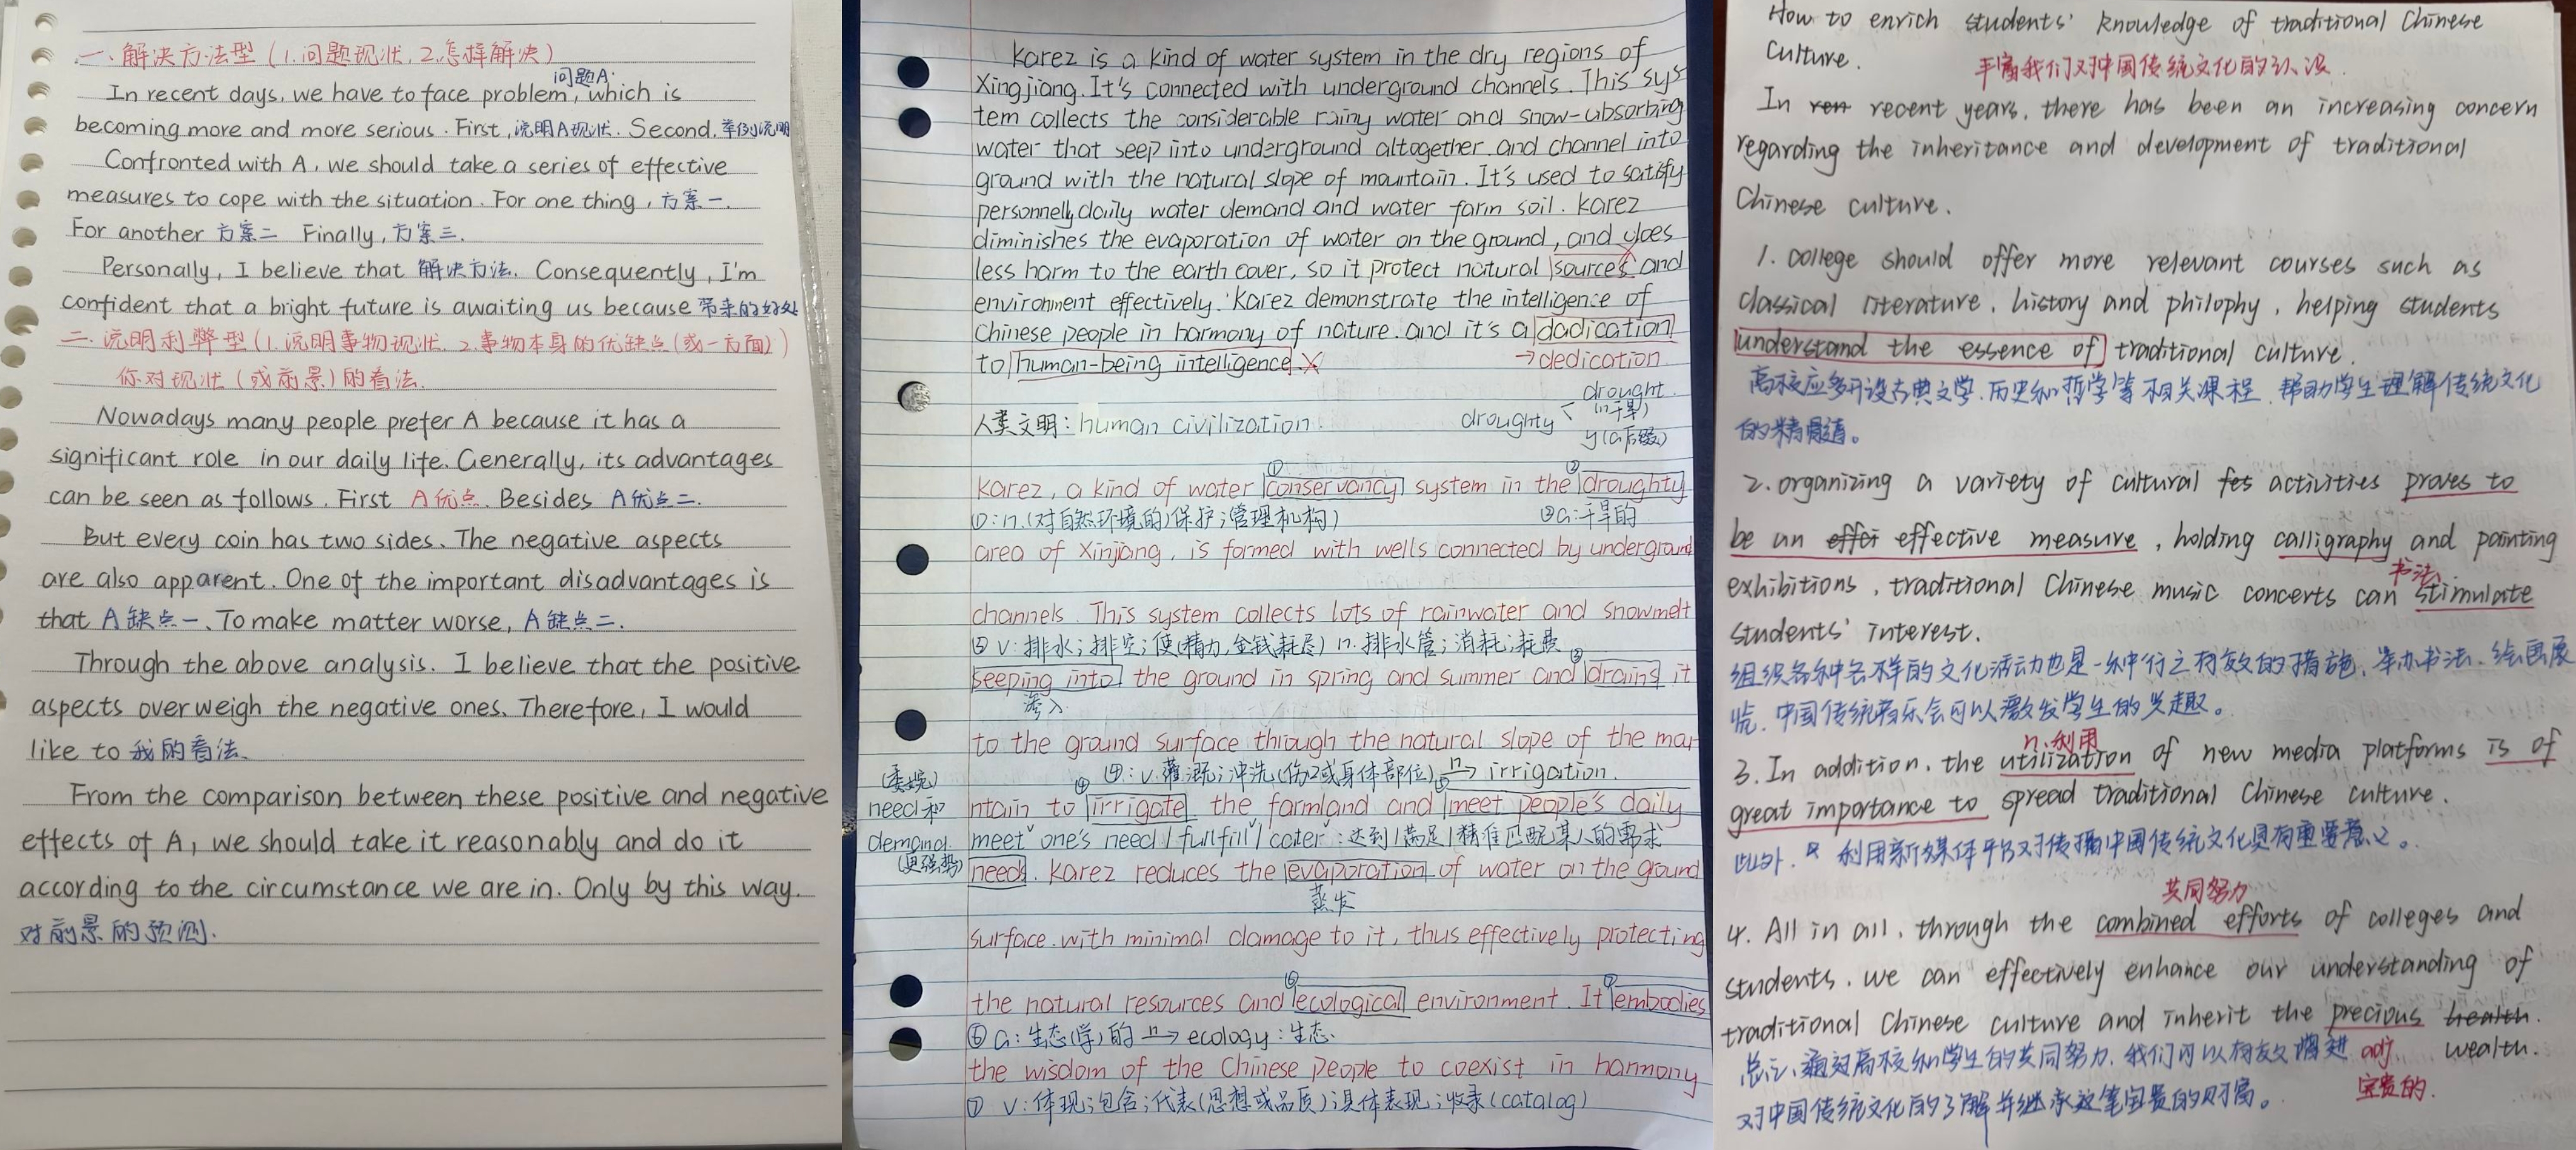 一、解决方法型（1.问题现状，2.怎样解决）
问题A
In recent days, we have to face problem, which is
becoming more and more serious. First, 说明A现状. Second, 举例说明
Confronted with A, we should take a series of effective
measures to cope with the situation. For one thing, 方案一.
For another 方案二 Finally, 方案三.
Personally, I believe that 解决方法. Consequently, I'm
confident that a bright future is awaiting us because 带来的好处
二、说明利弊型（1.说明事物现状、2.事物本身的优缺点（或一方面））
你对现状（或前景）的看法.
Nowadays many people prefer A because it has a
significant role in our daily life. Generally, its advantages
can be seen as follows. First A优点. Besides A优点二.
But every coin has two sides. The negative aspects
are also apparent. One of the important disadvantages is
that A缺点一. To make matter worse, A缺点二.
Through the above analysis. I believe that the positive
aspects overweigh the negative ones. Therefore, I would
like to 我的看法.
From the comparison between these positive and negative
effects of A, we should take it reasonably and do it
according to the circumstance we are in. Only by this way.
对前景的预测.
Karez is a kind of water system in the dry regions of
Xingjiang. It's connected with underground channels. This sys-
tem collects the considerable rainy water and snow-absorbing
water that seep into underground altogether and channel into
ground with the natural slope of mountain. It's used to satisfy
personnelly daily water demand and water farm soil. Karez
diminishes the evaporation of water on the ground, and does
less harm to the earth cover, so it protect natural sources and
environment effectively. Karez demonstrate the intelligence of
Chinese people in harmony of nature. and it's a dadication
to human-being intelligence. → dedication
人类文明: human civilization.
droughty
drought
(n干旱)
y(a后缀)
① ②
Karez, a kind of water conservancy system in the droughty
①: n.(对自然环境的)保护；管理机构) ②a:干旱的
area of Xinjiang, is formed with wells connected by underground
channels. This system collects lots of rainwater and snowmelt
③ v: 排水；排空；使(精力,金钱耗尽) n. 排水管；消耗；耗费
③
seeping into the ground in spring and summer and drains it
渗入
to the ground surface through the natural slope of the mou-
④: v. 灌溉；冲洗(伤口或身体部位) n→ irrigation.
ntain to irrigate the farmland and meet people's daily
(委婉)
need和
demand
(更强势)
meet one's need / fullfill / cater: 达到/满足/精准匹配某人的需求
need. Karez reduces the evaporation of water on the ground
蒸发
surface. with minimal damage to it, thus effectively protecting
⑥ ⑦
the natural resources and ecological environment. It embodies
⑥ a: 生态(学)的 n→ ecology: 生态.
the wisdom of the Chinese people to coexist in harmony
⑦ v: 体现；包含；代表(思想或品质)；具体表现；收录(catalog)
How to enrich students' knowledge of traditional Chinese
Culture.
丰富我们对中国传统文化的认识
In ren recent years, there has been an increasing concern
regarding the inheritance and development of traditional
Chinese culture.
1. college should offer more relevant courses such as
classical literature, history and philophy, helping students
understand the essence of traditional culture.
高校应多开设古典文学、历史和哲学等相关课程, 帮助学生理解传统文化
的精髓。
2. organizing a variety of cultural fes activities proves to
be an effei effective measure, holding calligraphy and painting
书法
exhibitions, traditional Chinese music concerts can stimulate
students' interest.
组织各种各样的文化活动也是一种行之有效的措施, 举办书法、绘画展
览, 中国传统音乐会可以激发学生的兴趣。
n.利用
3. In addition, the utilization of new media platforms is of
great importance to spread traditional Chinese culture.
此外, 利用新媒体平台对传播中国传统文化具有重要意义。
共同努力
4. All in all, through the combined efforts of colleges and
students, we can effectively enhance our understanding of
traditional Chinese culture and inherit the precious health.
wealth.
总之, 通过高校和学生的共同努力, 我们可以有效增进
adj.
宝贵的.
对中国传统文化的了解并继承这笔宝贵的财富。